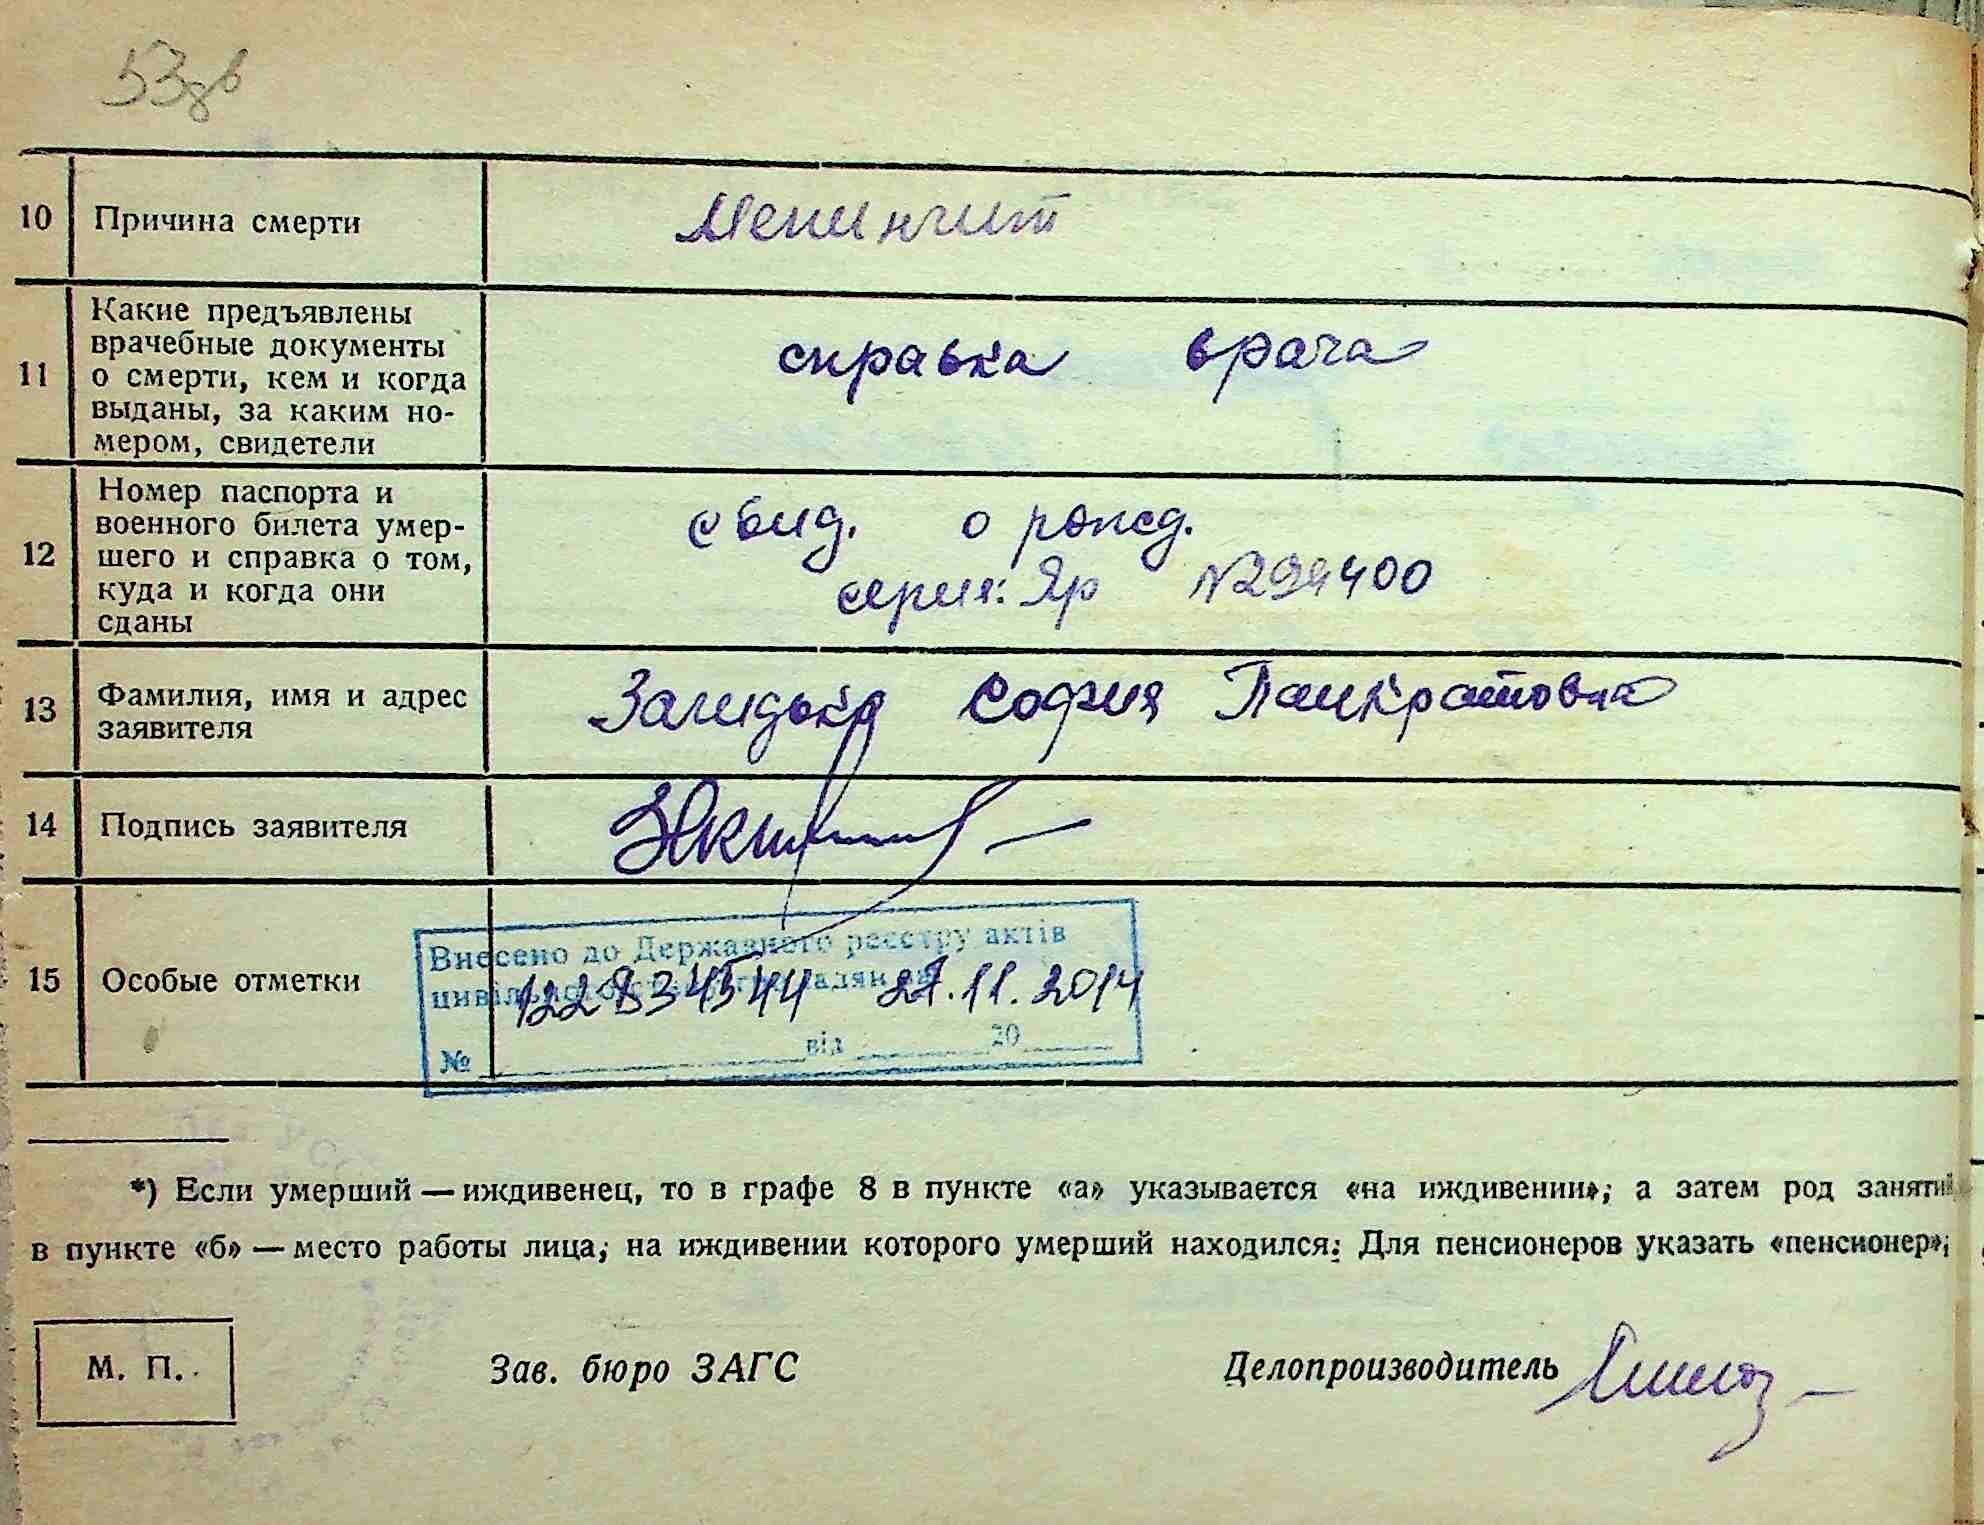 53зв
10 Причина смерти Менингит
11 Какие предъявлены
врачебные документы
о смерти, кем и когда
выданы, за каким но-
мером, свидетели
справка врача
12 Номер паспорта и
военного билета умер-
шего и справка о том,
куда и когда они
сданы
свид. о рожд.
серия: Яр № 294400
13 Фамилия, имя и адрес
заявителя
София Панкратовна
14 Подпись заявителя
15 Особые отметки
Внесено до Державного реєстру актів
цивільного стану громадян за
122834544 27.11.2014
№ від 20
*) Если умерший — иждивенец, то в графе 8 в пункте «а» указывается «на иждивении»; а затем род заняти
в пункте «б» — место работы лица; на иждивении которого умерший находился. Для пенсионеров указать «пенсионер»;
М. П. Зав. бюро ЗАГС Делопроизводитель